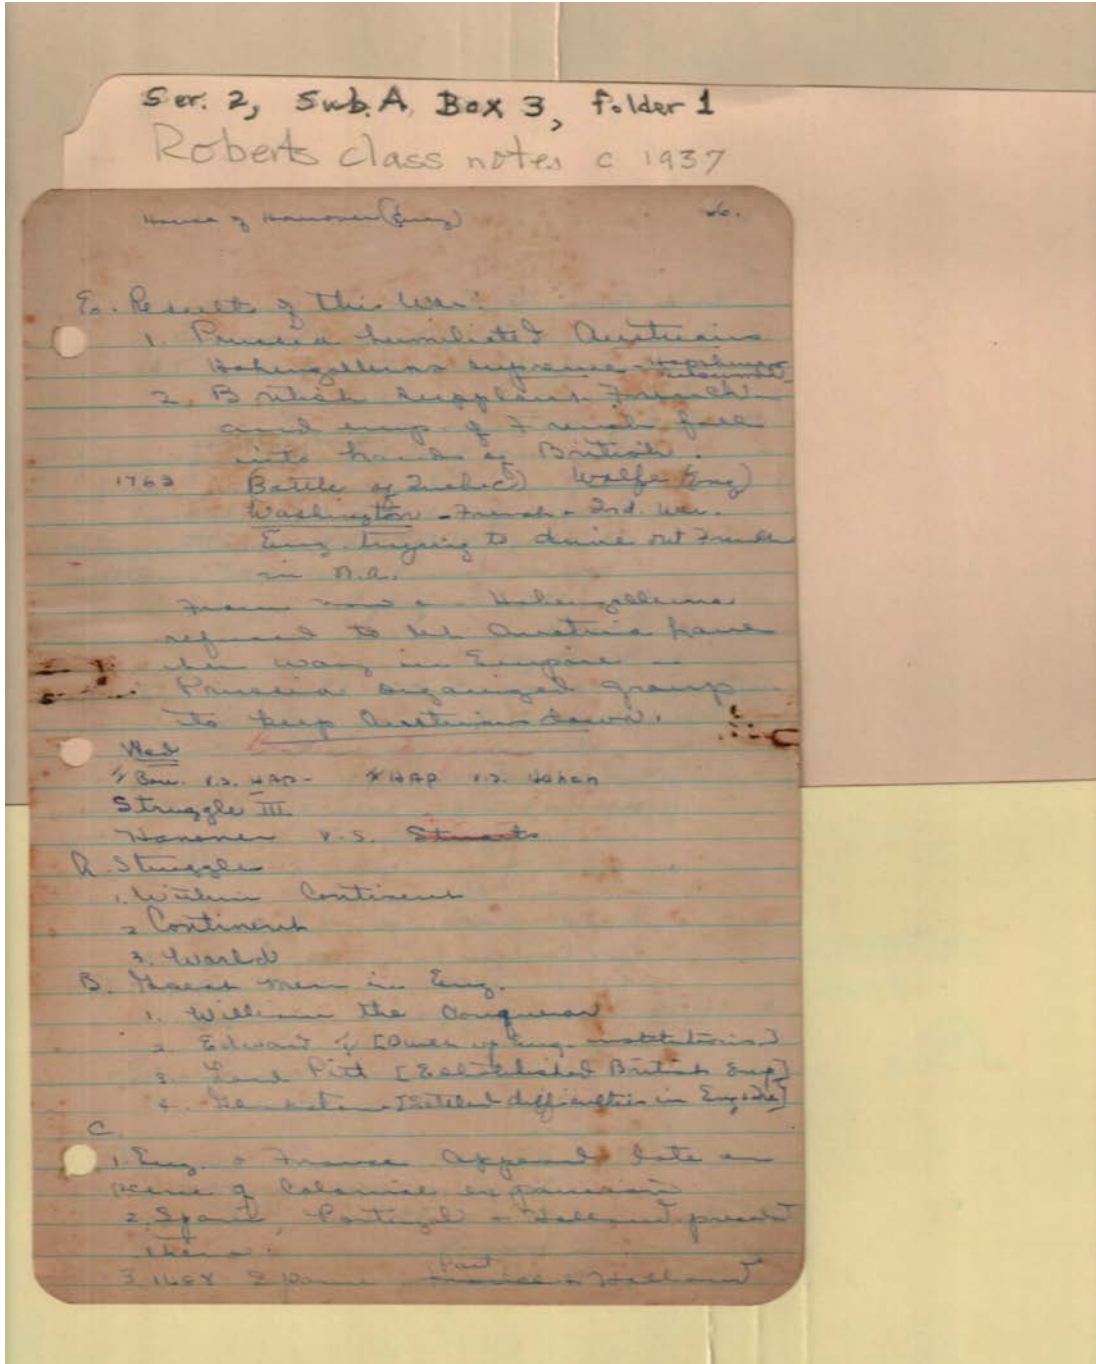 Ser. 2, Sub. A, Box 3, folder 1
Roberts class notes c 1937
House of Hanover (Eng)
26.
E. Results of this War:
1. Prussia humiliated Austrians
Hohenzollerns supreme -
2. British supplant French
and emp. of French fall
into hands of British.
1763 Battle of Quebec) Wolfe (Eng)
Washington - French - 2nd. War.
Eng. trying to drive out French
in N.A.
From now on Hohenzollerns
refused to let Austria have
her way in Empire -
Prussia organized group
to keep Austrians down.
Wed
Bour. v.s. HAP - HAP v.s. Hohen
Struggle III
Hanover v.s. Stuarts
A. Struggle
1. Within Continent
2 Continent
3. World
B. Great men in Eng.
1. William the Conqueror
2. Edward I [ up Eng. institutions]
3. Lord Pitt [Established British Emp]
4. [Settled difficulties in Empire]
C.
1. Eng. & France appeared late on
scene of Colonial expansion
2. Spain, Portugal & Holland preced
them.
3. Part & Holland